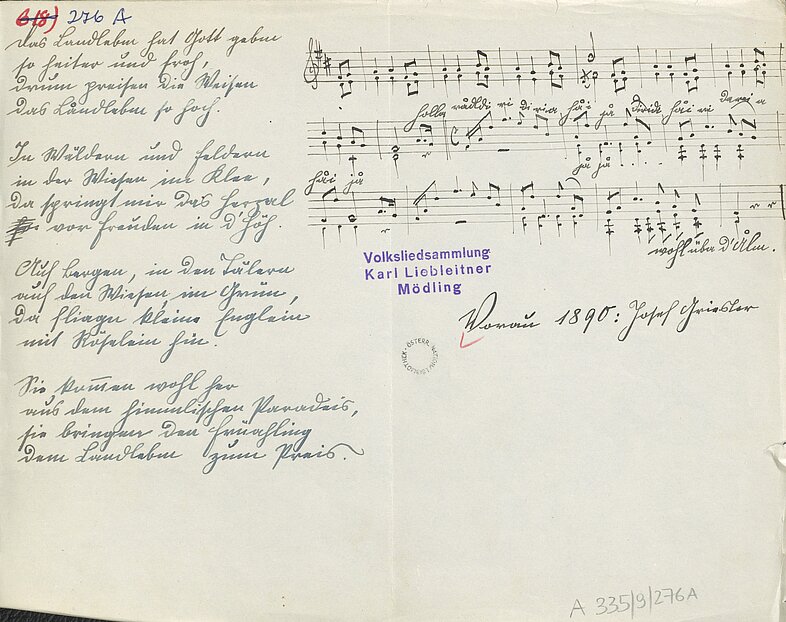 6(8) 276 A
Das Landlebm hat Gott gebm
so heiter und froh,
drum preisen die Weisen
das Låndlebm so hoch.
In Wäldern und Feldern
in der Wiesen im Klee,
da springt mir das Herzal
vor Freuden in d'Höh.
Auf Bergen, in den Tälern
auf den Wiesen im Grün,
da fliagn kleine Englein
mit Röselein hin.
Sie kom̅en wohl her
aus dem himmlischen Paradeis,
sie bringen den Früahling
dem Landlebm zum Preis.
holla rådldi ri di ria håi jå diridi håi ri
jå jå
håi jå
wohl üba d'Ålm.
Volksliedsammlung
Karl Liebleitner
Mödling
Vorau 1890: Josef Griesler
A 335/9/276A